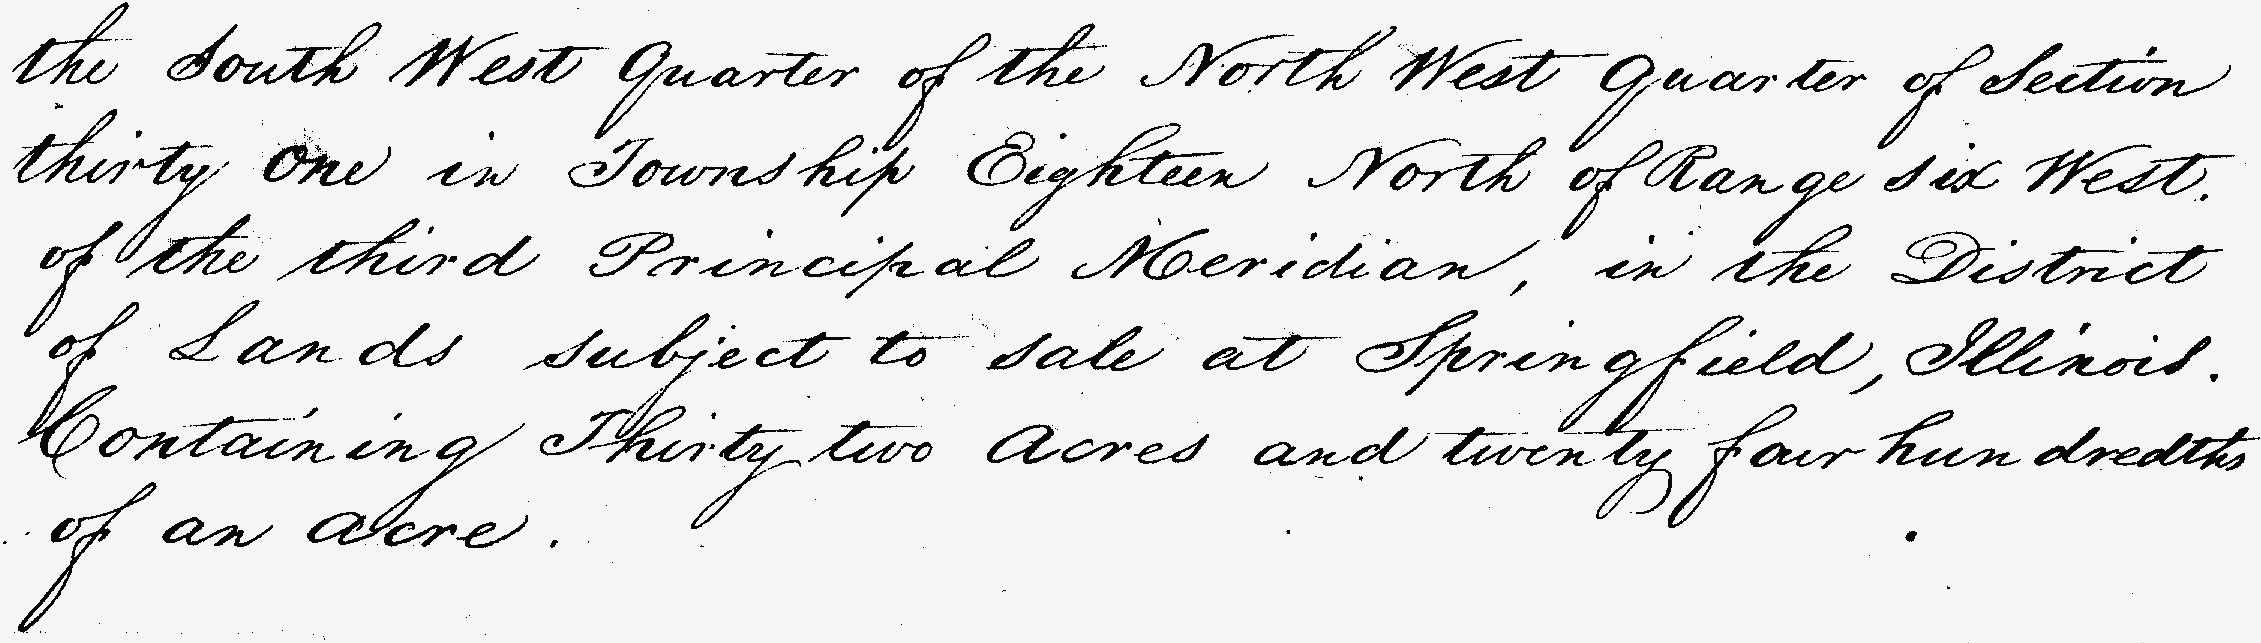 the South West Quarter of the North West Quarter of Section
thirty One in Township Eighteen North of Range six West.
of the third Principal Meridian, in the District
of Lands subject to sale at Springfield, Illinois.
Containing Thirty two Acres and twenty four hundredths
of an acre.